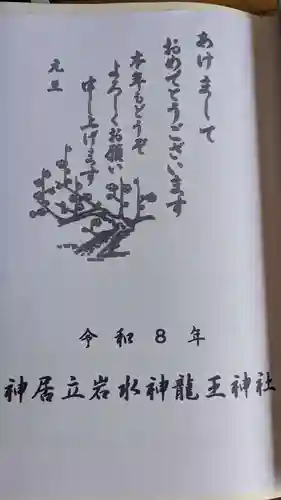 あけまして
おめでとうございます
本年もどうぞ
よろしくお願い
申し上げます
元旦
令和8年
神居立岩水神龍王神社